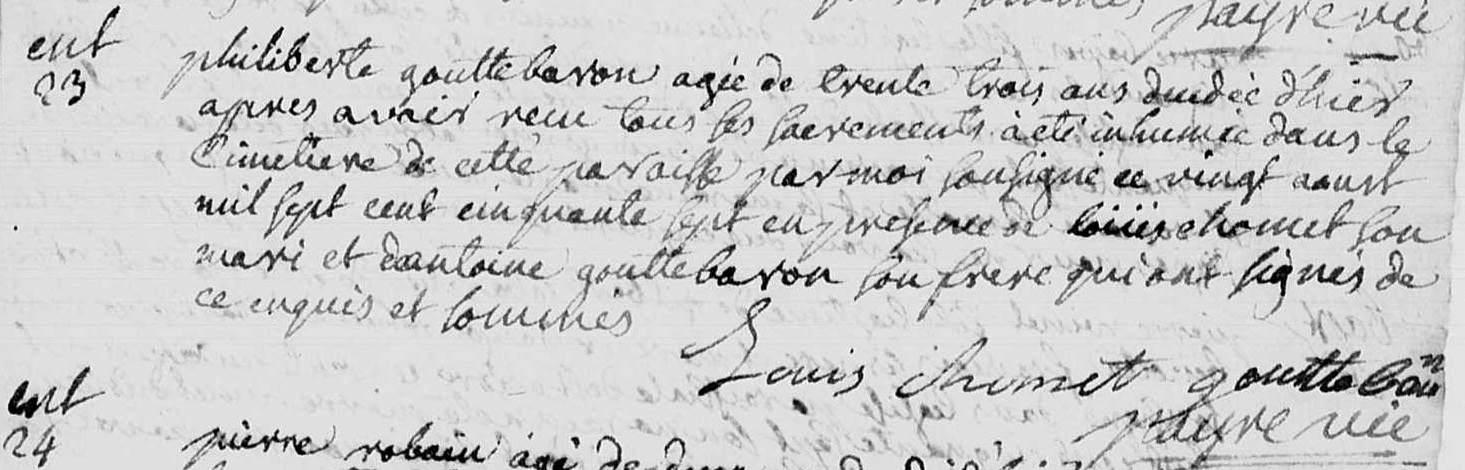 payre vic
ent
23
philiberte gouttebaron agée de trente trois ans décédée d'hier
apres avoir recu tous ses sacrements a eté inhumée dans le
Cimetiere de cette paroisse par moi soussigné ce vingt aoust
mil sept cent cinquante sept en presence de louis chomet son
mari et dantoine gouttebaron son frere qui ont signés de
ce enquis et sommés
Louis chomet gouttebaron
payre vic
ent
24
pierre robain agé de